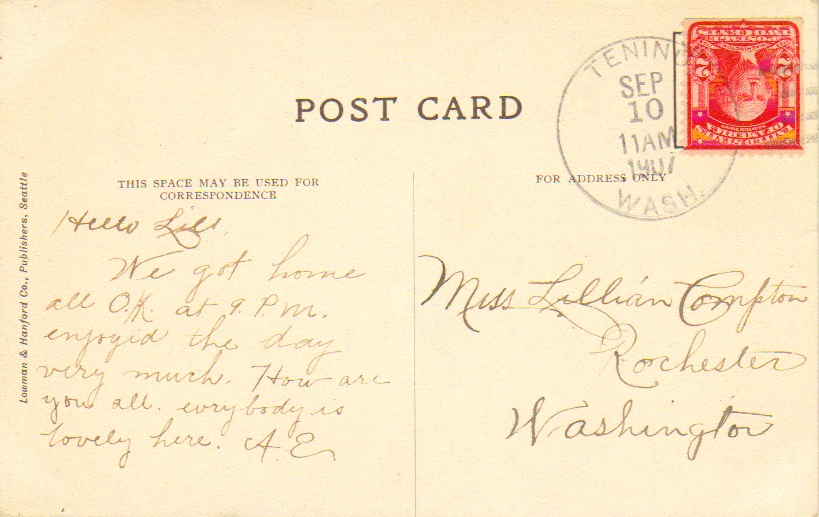 POST CARD
TENIN
SEP
10
11AM
1907
WASH.
UNITED STATES OF AMERICA
POSTAGE
2 2
TWO CENTS
THIS SPACE MAY BE USED FOR
CORRESPONDENCE
FOR ADDRESS ONLY
Lowman & Hanford Co., Publishers, Seattle
Hello Lill.
We got home
all O.K. at 9. P.M.
enjoyid the day
very much. How are
you all. evrybody is
lovely here. A.E.
Miss Lillian Compton
Rochester
Washington